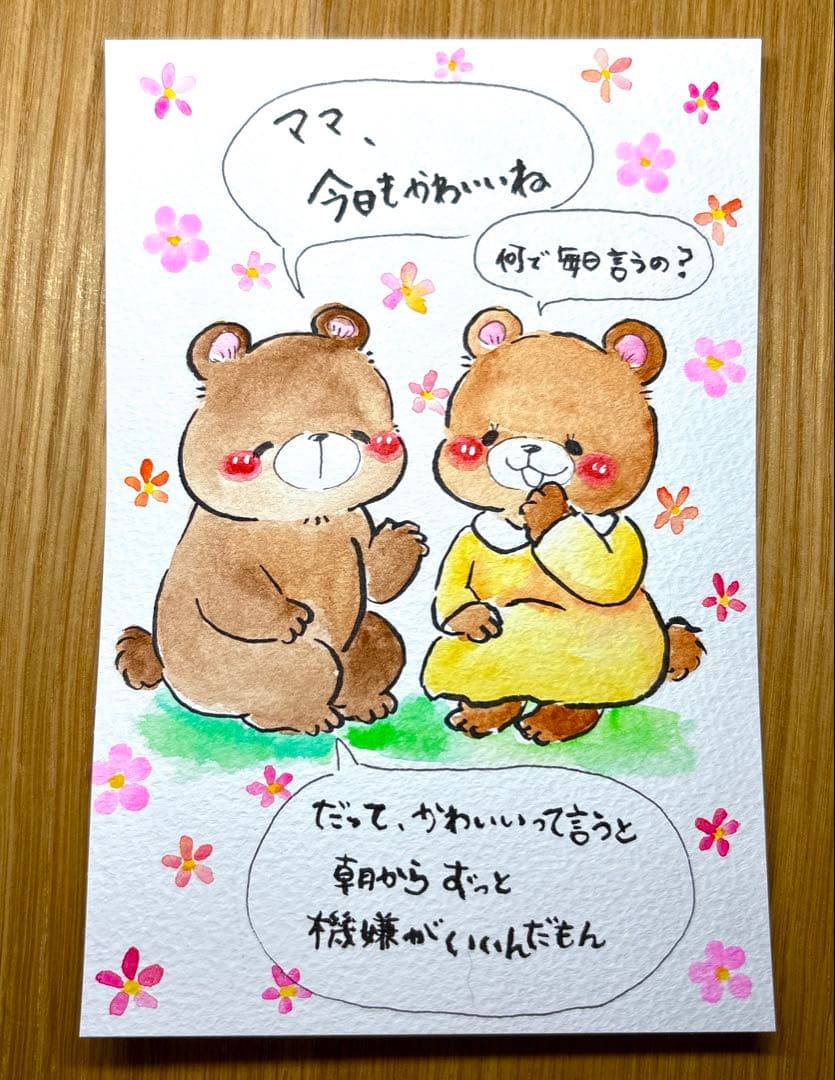 ママ、
今日もかわいいね
何で毎日言うの?
だって、かわいいって言うと
朝からずっと
機嫌がいいんだもん